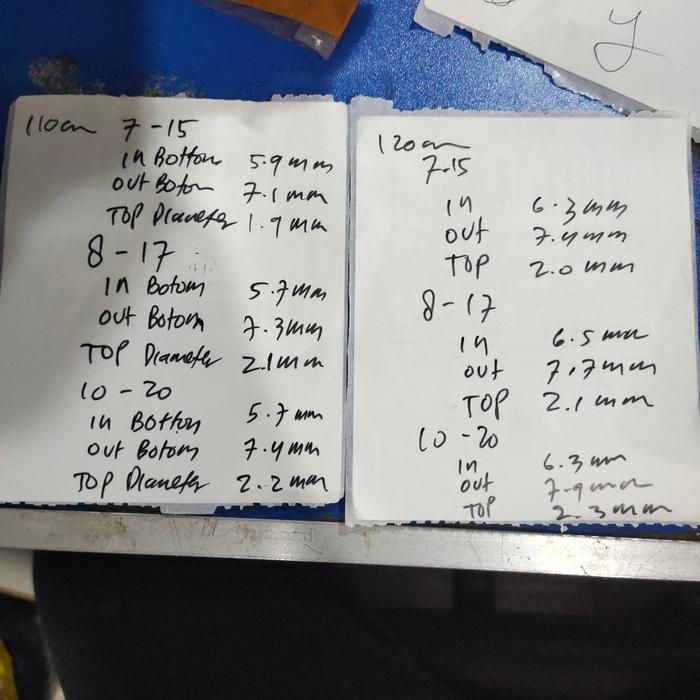 y
110cm 7-15
in Bottom 5.9mm
out Botom 7.1mm
TOP Diameter 1.9mm
8-17
in Botom 5.7mm
out Botom 7.3mm
TOP Diameter 2.1mm
10-20
in Bottom 5.7mm
out Botom 7.4mm
TOP Diameter 2.2mm
120cm
7-15
in 6.3mm
out 7.4mm
TOP 2.0mm
8-17
in 6.5mm
out 7.7mm
TOP 2.1mm
10-20
in 6.3mm
out 7.9mm
TOP 2.3mm